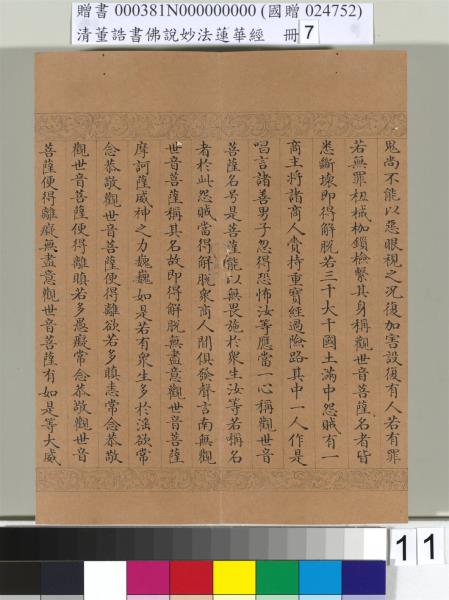 贈書 000381N000000000 (國贈 024752)
清董誥書佛說妙法蓮華經 冊 7
鬼尚不能以惡眼視之况復加害設復有人若有罪
若無罪杻械枷鎖檢繫其身稱觀世音菩薩名者皆
悉斷壞即得解脫若三千大千國土滿中怨賊有一
商主將諸商人賫持重寶經過險路其中一人作是
唱言諸善男子勿得恐怖汝等應當一心稱觀世音
菩薩名号是菩薩能以無畏施於衆生汝等若稱名
者於此怨賊當得解脫衆商人聞俱發聲言南無觀
世音菩薩稱其名故即得解脫無盡意觀世音菩薩
摩訶薩威神之力巍巍如是若有衆生多於淫欲常
念恭敬觀世音菩薩便得離欲若多瞋恚常念恭敬
觀世音菩薩便得離瞋若多愚癡常念恭敬觀世音
菩薩便得離癡無盡意觀世音菩薩有如是等大威
11